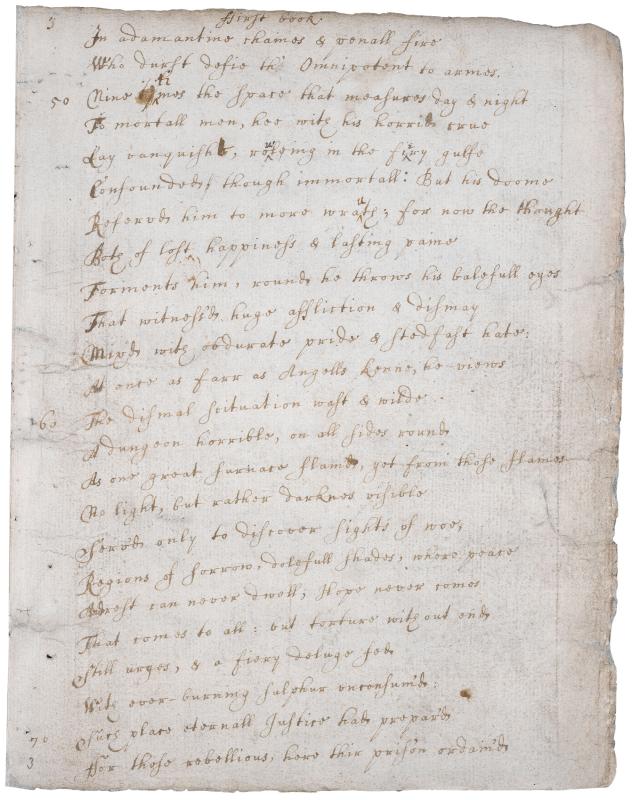 3 First book.
In adamantine chaines & penall fire
Who durst defie th' Omnipotent to armes.
50 Nine times the space that measures day & night
To mortall men, hee with his horrid crue
Lay vanquisht, rouling in the firy gulfe
Confounded though immortall: But his doome
Reserv'd him to more wrath; for now the thought
Both of lost happiness & lasting paine
Torments him, round he throws his balefull eyes
That witness'd huge affliction & dismay
Mixd with obdurate pride & stedfast hate:
At once as farr as Angells kenne, he views
The dismal scituation wast & wilde.
60 A dungeon horrible, on all sides round
As one great furnace flam'd, yet from those flames
No light, but rather darknes visible
Serv'd only to discover sights of woe;
Regions of sorrow, dolefull shades, where peace
And rest can never dwell, Hope never comes
That comes to all: but torture without end
Still urges, & a fiery deluge fed
With ever-burning sulphur unconsum'd:
Such place eternall Justice had prepar'd
70 For those rebellious, here thir prison ordain'd
3